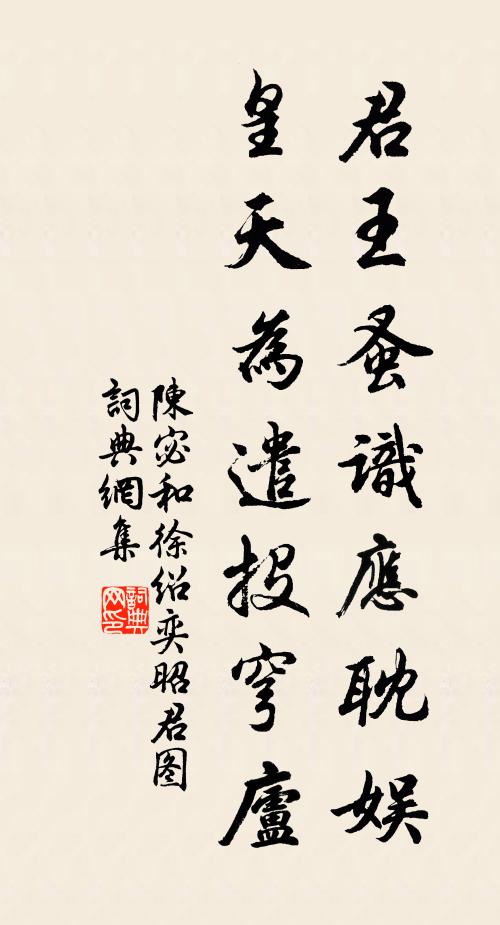 君王蚤識應耽娛
皇天為遣投穹廬
陳宓和徐绍奕昭君图
詞典網集
詞典网印